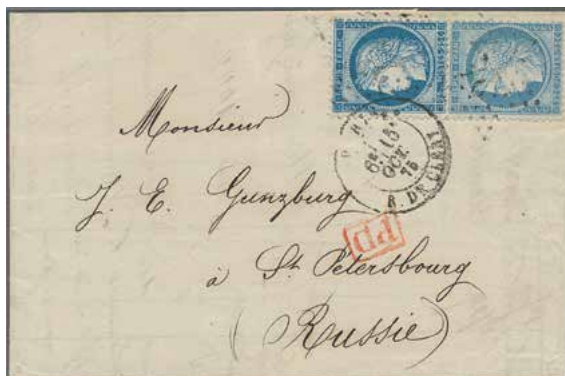 Monsieur
J. E. Gunzburg
à St Pétersbourg
(Russie)
PARIS
6E/ 15
OCT.
75
R. DE CLERY
PD